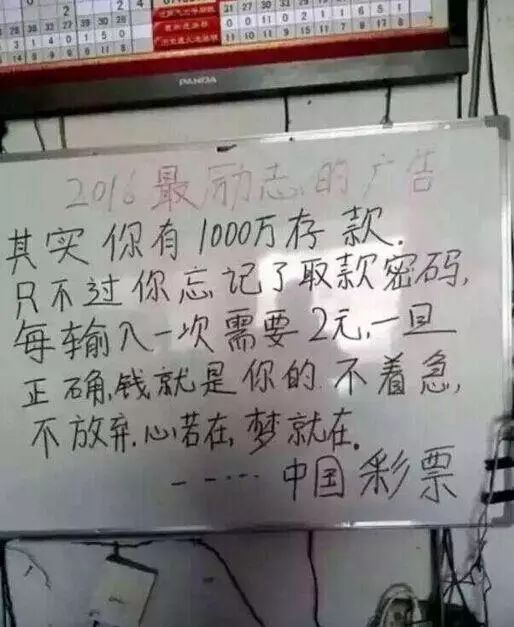 PANDA
2016最励志的广告
其实你有1000万存款.
只不过你忘记了取款密码,
每输入一次需要2元,一旦
正确,钱就是你的.不着急,
不放弃.心若在,梦就在.
-----中国彩票